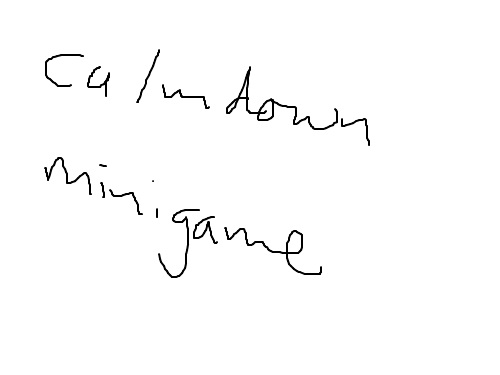 Calmdown
minigame